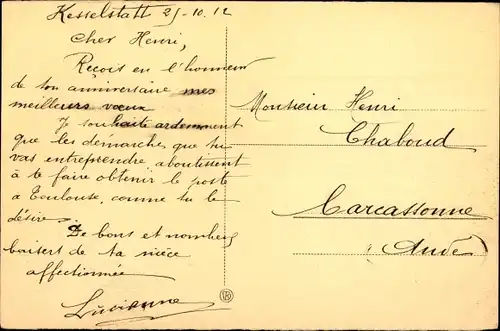 Kesselstatt 25-10.12
Cher Henri,
Reçois en l'honneur
de ton anniversaire mes
meilleurs vœux
Je souhaite ardemment
que les démarche, que tu
vas entreprendre aboutissent
à te faire obtenir le poste
à Toulouse, comme tu le
désire.
De bons et nombreux
baisers de ta nièce
affectionnée
Lucienne
Monsieur Henri
Chaboud
Carcassonne
(Aude)